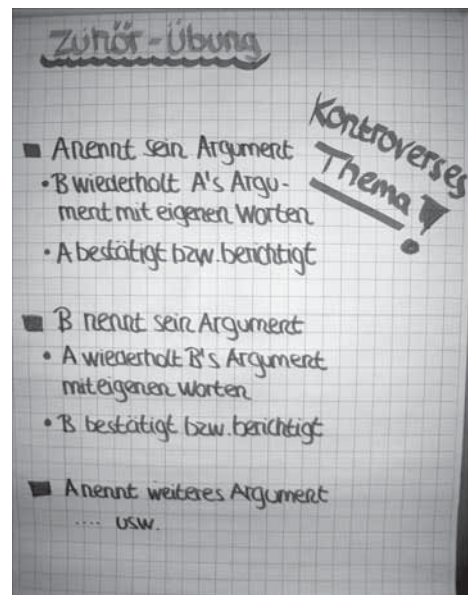 Zuhör-Übung
Kontroverses
Thema!
■ A nennt sein Argument
• B wiederholt A's Argu-
ment mit eigenen Worten
• A bestätigt bzw. berichtigt
■ B nennt sein Argument
• A wiederholt B's Argument
mit eigenen Worten
• B bestätigt bzw. berichtigt
■ A nennt weiteres Argument
.... usw.